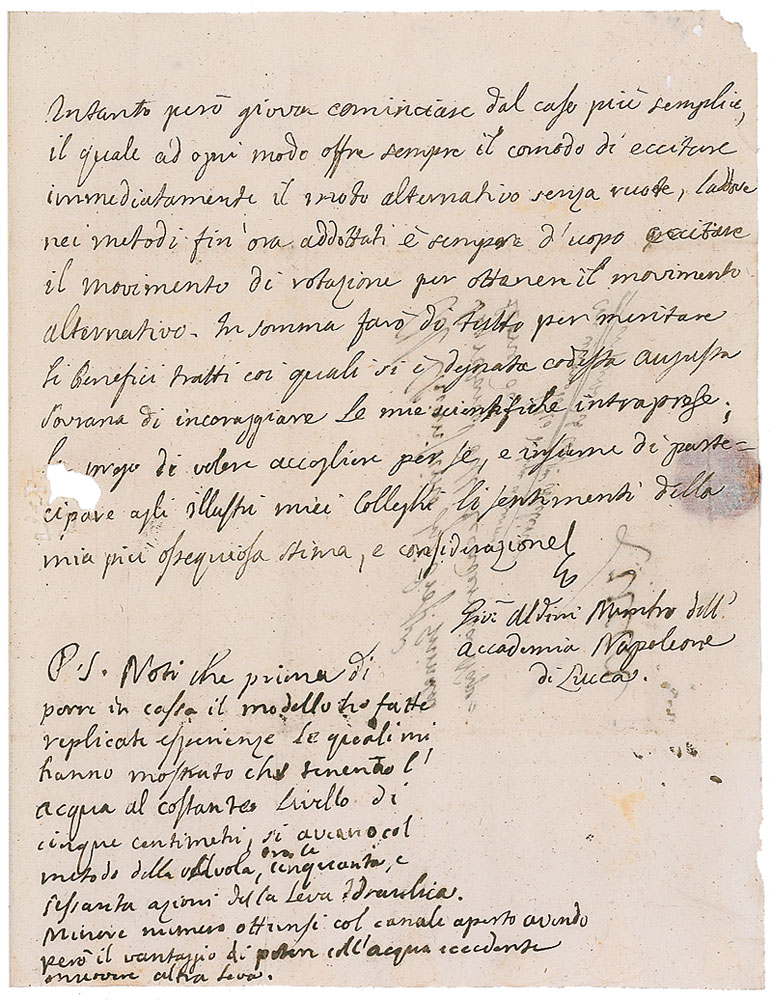 Intanto però giova cominciare dal caso più semplice,
il quale ad ogni modo offre sempre il comodo di eccitare
immediatamente il moto alternativo senza ruote, laddove
nei metodi fin' ora addottati è sempre d'uopo eccitare
il movimento di rotazione per ottenere il movimento
alternativo. In somma farò di tutto per meritare
li benefici tratti coi quali si è degnata codesta augusta
sovrana di incoraggiare le mie scientifiche intraprese.
prego di volere accogliere per se, e insieme di parte=
cipare agli illustri miei Colleghi li sentimenti della
mia più ossequiosa stima, e considerazione
Giov. Aldini Membro dell'
Accademia Napoleone
di Lucca.
P.S. Noti che prima di
porre in cassa il modello ho fatte
replicate esperienze le quali mi
hanno mostrato che tenendo l'
acqua al costante livello di
cinque centimetri, si avevano col
metodo della valvola, cinquanta, e
sessanta azioni della Leva Idraulica.
Minore numero ottensi col canale aperto avendo
però il vantaggio di potere coll'acqua eccedente
muovere altra leva.